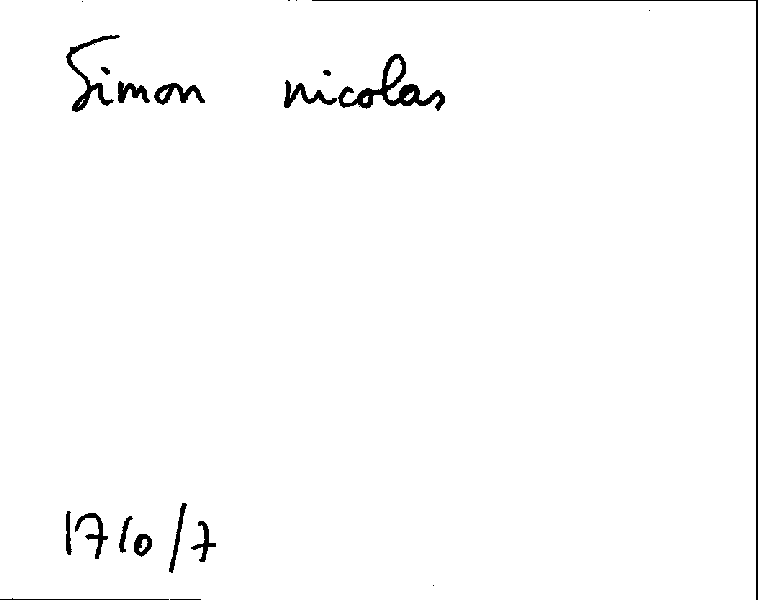 Simon nicolas
1710/7